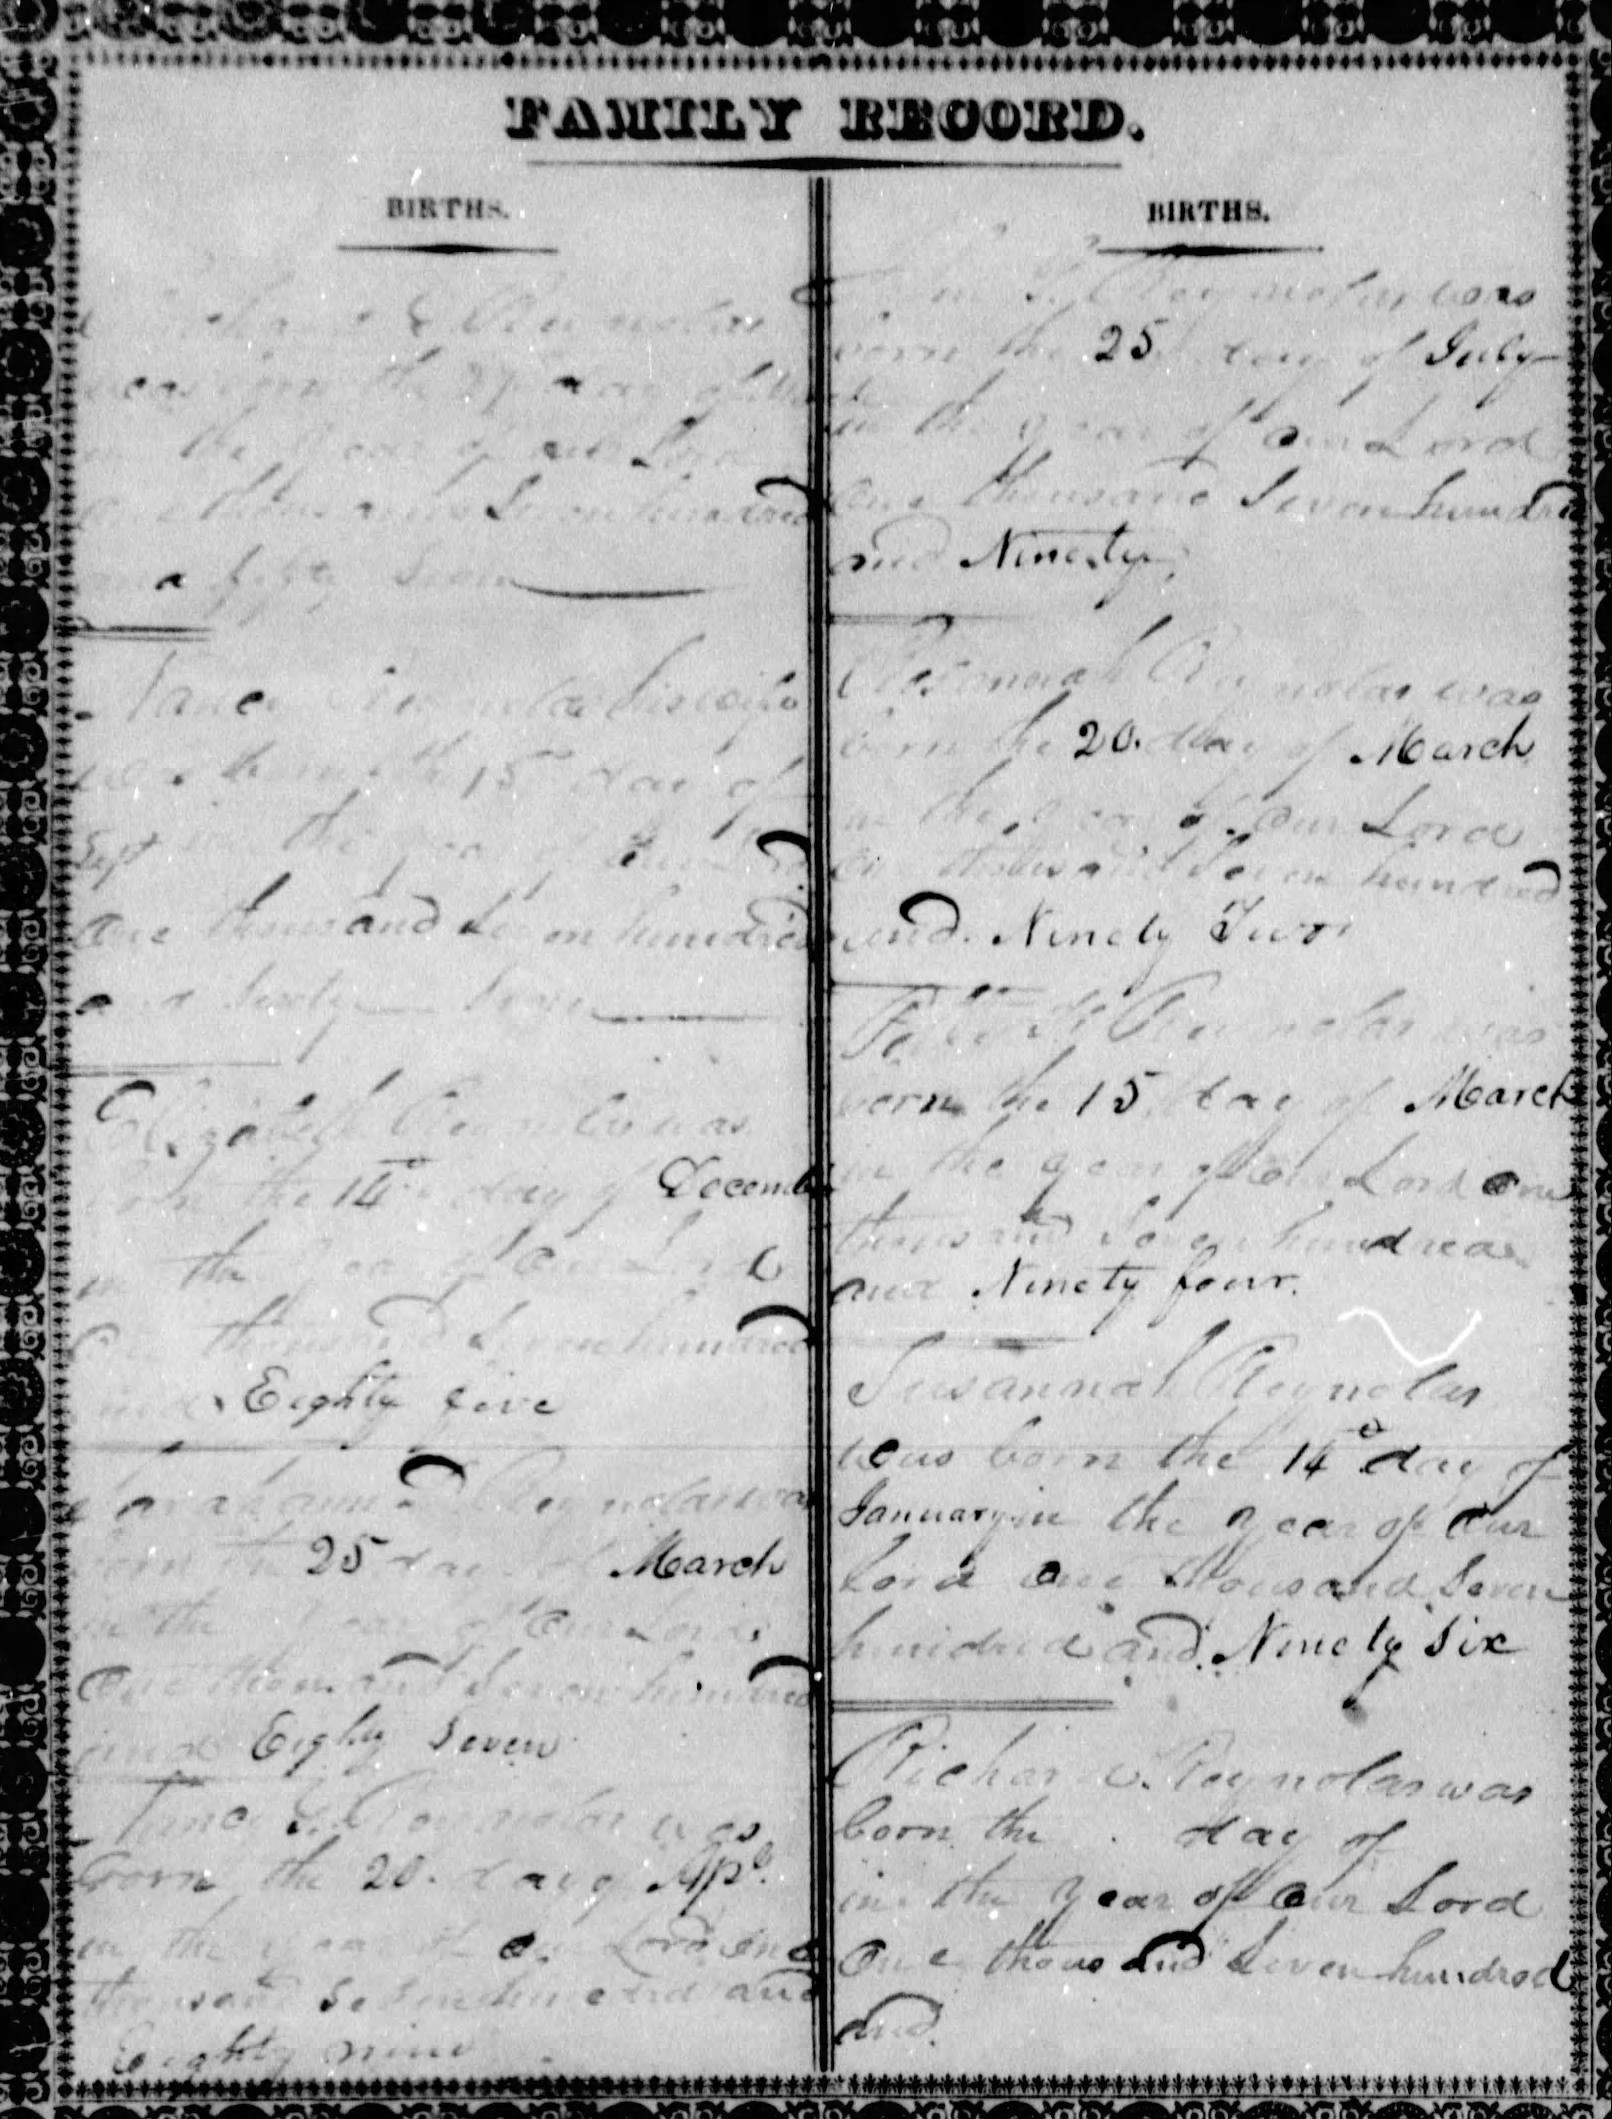 FAMILY RECORD.
BIRTHS.
Reynolds
was born the day of
in the year of our Lord
one thousand Seven hundred
and fifty Seven
Nancy Reynolds his wife
was born the 15 day of
Sept in the year of our Lord
One thousand Seven hundred
and Sixty
Elizabeth Reynolds was
born the 14th day of Decemb
in the year of Our Lord
One thousand Seven hundred
and Eighty five
Reynolds was
born the 25 day of March
in the year of Our Lord
One thousand Seven hundred
and Eighty Seven
Reynolds was
born the 20. day of Apl.
in the year of our Lord one
thousand Seven hundred and
Eighty nine
BIRTHS.
Reynolds was
born the 25 day of July
in the year of our Lord
One thousand Seven hundred
and Ninety
Reynolds was
born the 20. day of March
in the year of our Lord
one thousand Seven hundred
and. Ninety Two
Reynolds was
born the 15 day of March
in the year of Our Lord One
thousand Seven hundred
and Ninety four.
Susannah Reynolds
was born the 14th day of
January in the year of Our
Lord One thousand Seven
hundred and Ninety Six
Richard Reynolds was
born the day of
in the year of our Lord
One thousand Seven hundred
and